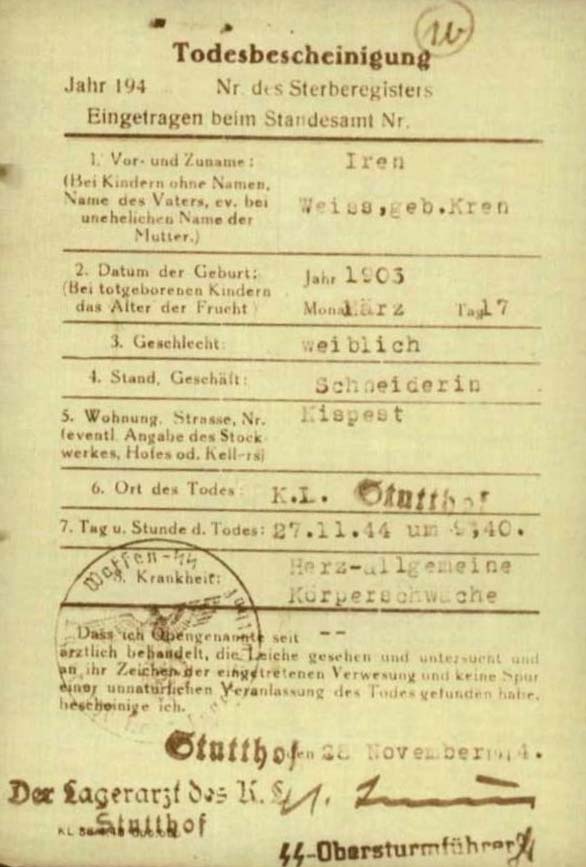 Todesbescheinigung
Jahr 194 Nr. des Sterberegisters
Eingetragen beim Standesamt Nr.
1. Vor- und Zuname:
Iren
(Bei Kindern ohne Namen,
Name des Vaters, ev. bei
unehelichen Name der
Mutter.)
Weiss,geb.Kren
2. Datum der Geburt:
(Bei totgeborenen Kindern
das Alter der Frucht)
Jahr 1903
Monat März Tag 17
3. Geschlecht: weiblich
4. Stand, Geschäft: Schneiderin
5. Wohnung, Strasse, Nr. Kispest
(eventl. Angabe des Stock-
werkes, Hofes od. Kellers)
6. Ort des Todes: K.L. Stutthof
7. Tag u. Stunde d. Todes: 27.11.44 um ,40.
Waffen-SS
8. Krankheit: Herz-allgemeine
Körperschwäche
Dass ich Obengenannte seit --
ärztlich behandelt, die Leiche gesehen und untersucht und
an ihr Zeichen der eingetretenen Verwesung und keine Spur
einer unnatürlichen Veranlassung des Todes gefunden habe,
bescheinige ich.
Stutthof, den 28 November
Der Lagerarzt des K.L.
Stutthof
SS-Obersturmführer